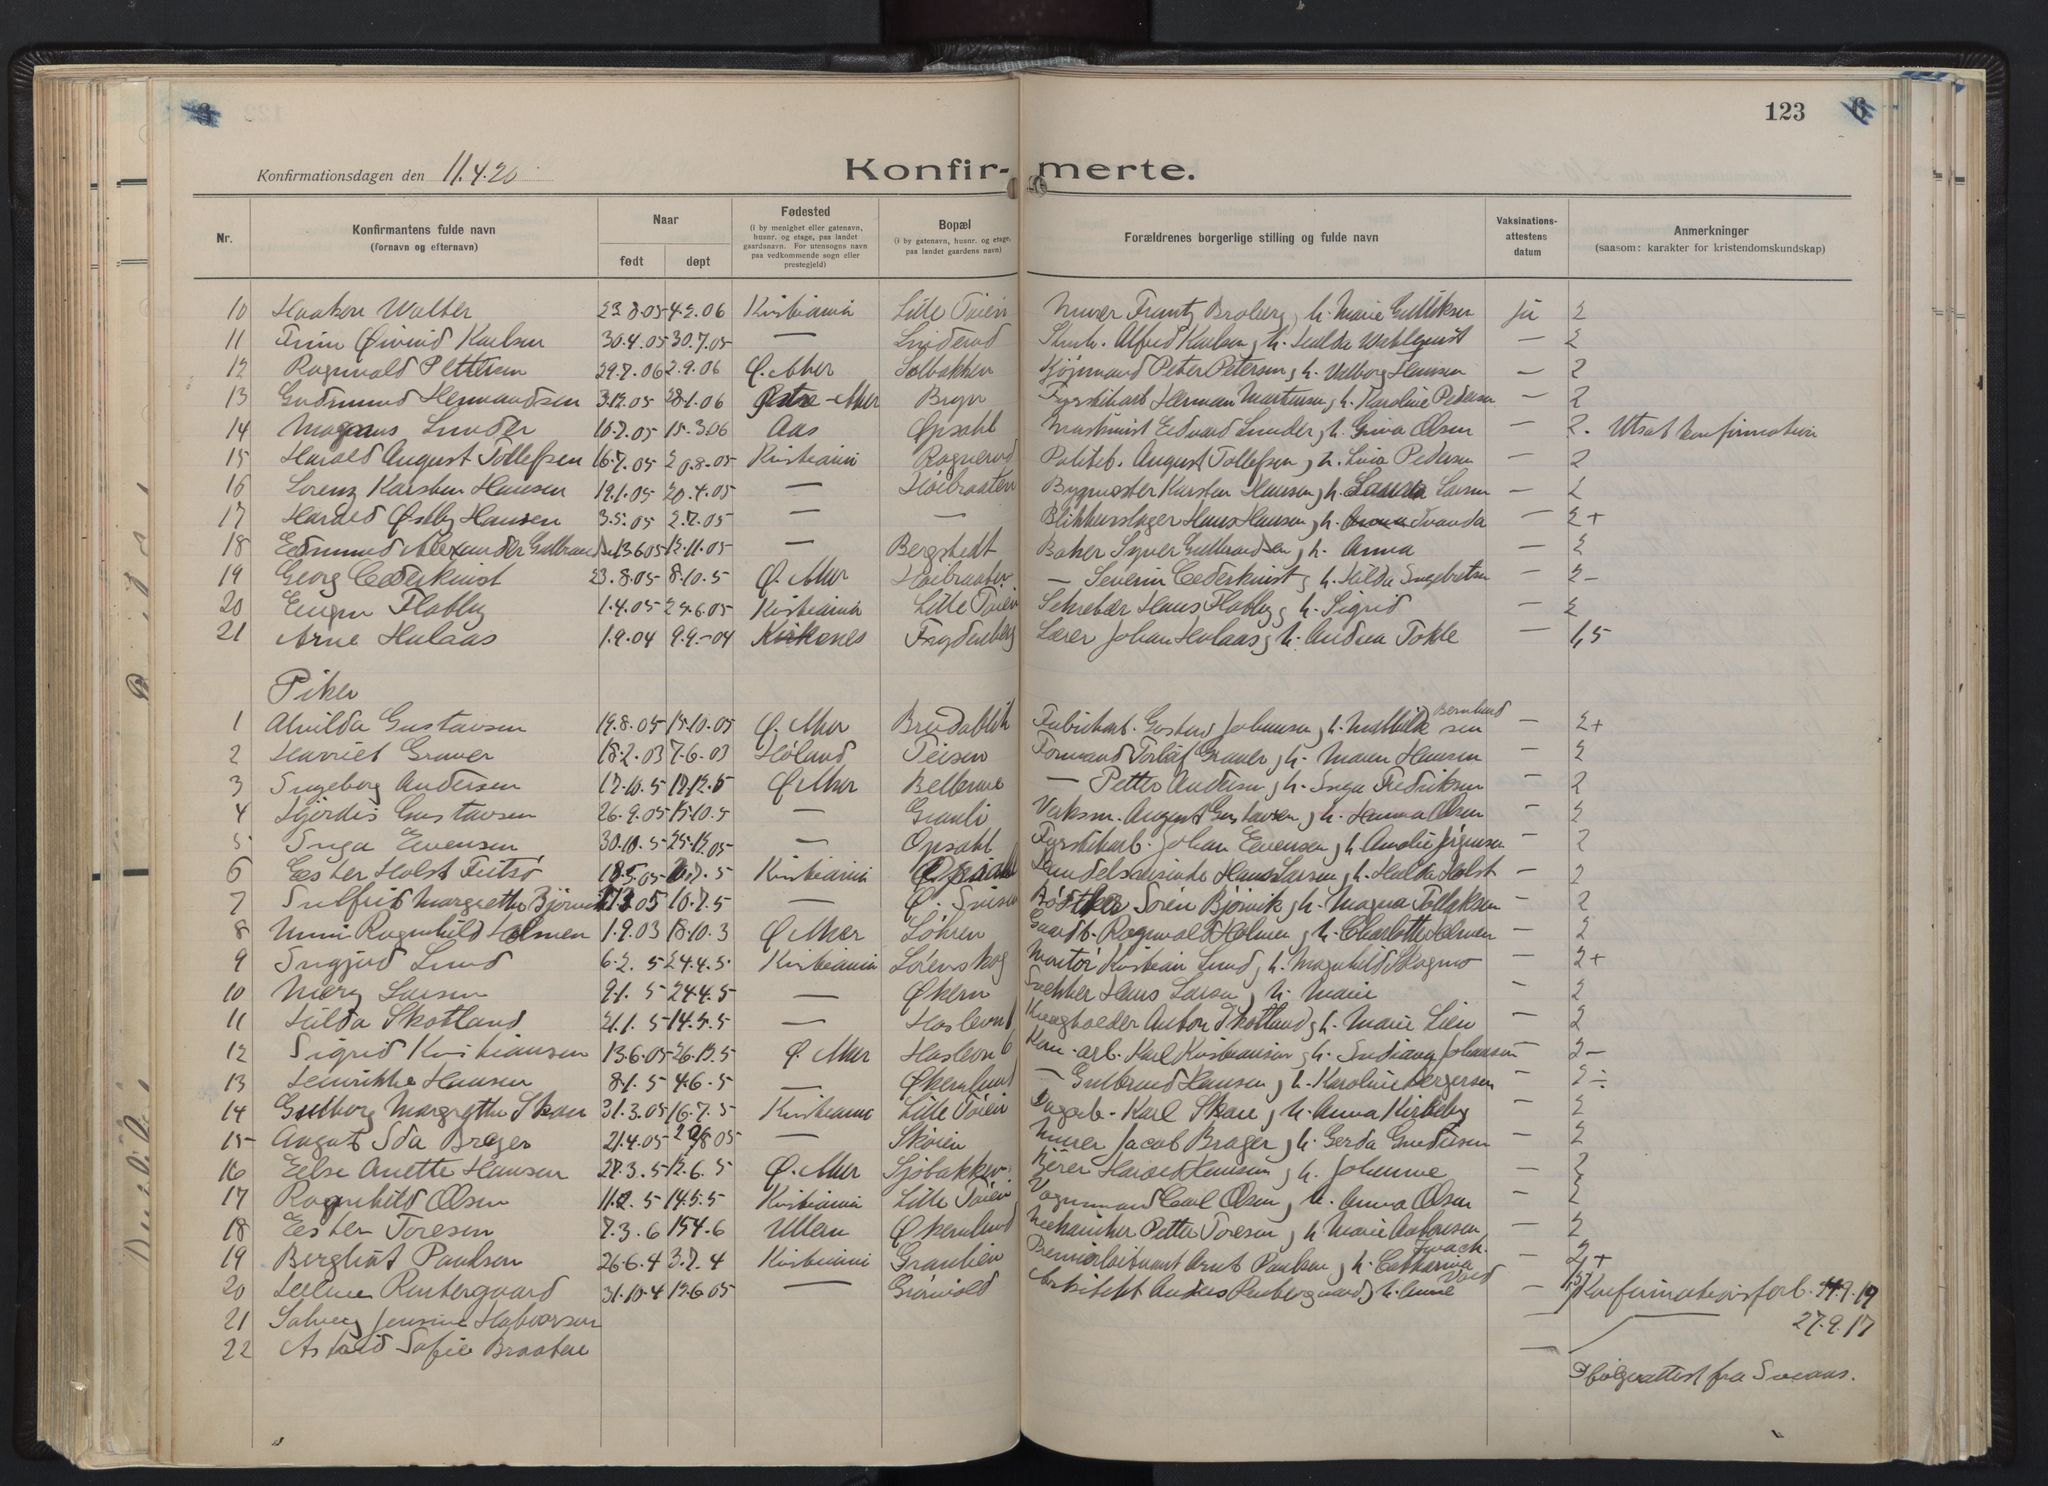 123
Konfirmationsdagen den 11.4.20
Konfir- merte.
Nr.
Konfirmantens fulde navn
(fornavn og efternavn)
Naar
født
døpt
Fødested
(i by menighet eller gatenavn, husnr. og etage, paa landet gaardsnavn. For utensogns navn paa vedkommende sogn eller prestegjeld)
Bopæl
(i by gatenavn, husnr. og etage, paa landet gaardens navn)
Forældrenes borgerlige stilling og fulde navn
Vaksinations-attestens datum
Anmerkninger
(saasom: karakter for kristendomskundskap)
10 Haakon Walter 23.8.05 4.2.06 Kristiania Lille Tøien Murer Frantz Broberg, h. Marie Gulliksen ja 2
11 Finn Øivind Karlsen 30.4.05 30.7.05 — Linderud Alfred Karlsen, h. Hulda Wahlquist — 2
12 Ragnvald Pettersen 29.7.06 2.9.06 Ø. Aker Solbakken Peter Petersen, h. Valborg Hansen — 2
13 Gudmund Hermandsen 3.12.05 28.1.06 Østre-Aker Bryn Fyrstikarb. Herman Martinsen, h. Karoline Pedersen — 2
14 Magnus Lunder 10.7.05 15.3.06 Aas Opsahl Maskinist Edvard Lunder, h. Olsen — 2. Utsat konfirmation
15 Harald August Tollefsen 16.7.05 20.8.05 Kristiania Rognerud Politib. August Tollefsen, h. Lina Pedersen — 2
16 Lorenz Karsten Hansen 19.1.05 20.4.05 — Høibraaten Bygmester Karsten Hansen, h. Laura Larsen — 2
17 Harald Østby Hansen 3.5.05 2.7.05 — — Blikkenslager Hans Hansen, h. Ivanda — 2+
18 Edmund Alexander Gulbrandsen 13.6.05 12.11.05 — Bergstedt Baker Syver Gulbrandsen, h. Anna — 2
19 Georg Cederkvist 23.8.05 8.10.5 Ø. Aker Høibraaten — Severin Cederkvist, h. Hilda Ingebretsen — 2-
20 Eugen Flatby 1.4.05 25.6.05 Kristiania Lille Tøien Hans Flatby, h. Sigrid — 2
21 Arne Hulaas 1.9.04 9.9.-04 Kirkenes Frydenberg Lærer Johan Hulaas, h. Andrea Tokle — 1,5
Piker
1 Alvilda Gustavsen 19.8.05 15.10.05 Ø. Aker Breidablik Fabrikarb. Gustav Johansen, h. Mathilde Berntsen — 2+
2 Harriet Graver 18.2.03 7.6.03 Høland Teisen Formand Torlaf Graver, h. Maren Hansen — 2
3 Ingeborg Andersen 12.10.5 17.12.5 Ø. Aker Bellevue — Petter Andersen, h. Inga Fredriksen — 2
4 Hjørdis Gustavsen 26.9.05 15.10.5 — Granli Verksm. August Gustavsen, h. Hanna Olsen — 2
5 Inga Evensen 30.10.5 25.12.05 — Opsahl Fyrstikarb. Johan Evensen, h. Amalie Jørgensen — 2
6 Ester Holst 18.5.05 Kristiania Hans Larsen, h. Hulda Holst — 2
7 Sulfrid Margrethe Bjørvik 05 16.7.5 — Bødtker Søren Bjørvik, h. Magna Tollaksen — 2
8 Unni Ragnhild Holmen 1.9.03 18.10.3 Ø. Aker Løhren Gaardb. Ragnvald Holmen, h. Charlotte Holmen — 2
9 Ingjerd Lund 6.2.5 24.4.5 Kristiania Lørenskog Montør Kristian Lund, h. Magnhild Skogmo — 2+
10 Mary Larsen 9.1.5 24.4.5 — Økern Snekker Hans Larsen, h. Marie — 2
11 Hilda Skotland 21.1.5 14.5.5 — Anton Skotland, h. Marie Lien — 2
12 Sigrid Kristiansen 13.6.05 26.12.5 Ø. Aker Karl Kristiansen, h. Indiana Johansen — 2-
13 Henrikke Hansen 8.1.5 4.6.5 — Økernlund — Gulbrand Hansen, h. Karoline Bergersen — 2÷
14 Gudborg Margrethe Skau 31.3.05 16.7.5 Kristiania Lille Tøien Karl Skau, h. Anna Kirkeby — 2
15 August Ida Brager 21.4.05 — Skøien Murer Jacob Brager, h. Gerda Gundersen — 2
16 Else Anette Hansen 27.3.5 12.6.5 Ø. Aker Sjøbakken Kjører Harald Hansen, h. Johanne — 2
17 Ragnhild Olsen 11.2.5 14.5.5 Kristiania Lille Tøien Vognmand Carl Olsen, h. Anna Olsen — 2
18 Ester Toresen 7.3.6 15.4.6 Ullern Økernlund Mekaniker Petter Toresen, h. Marie Antonsen — 2
19 Bergliot Paulsen 26.6.4 3.7.4 Kristiania Granlien Premierløitnant Arnt Paulsen, h. Catharina — 2+
20 31.10.4 12.6.05 — Grønvold Arkitekt Anders h. Anne — 1,5 Konfirmationsforb. 9.19
21 Solveig Jensine Halvorsen — 27.9.17
22 Astrid Sofie Braaten — Følgeattest fra